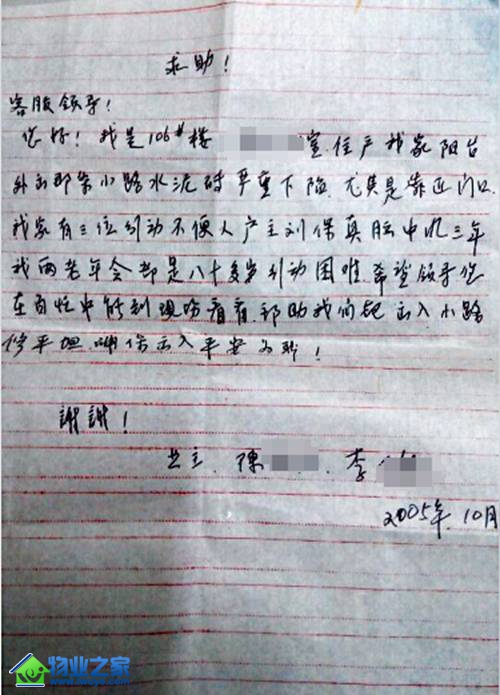 求助！
客服领导！
您好！我是106#楼 室住户我家阳台
外面那条小路水泥砖严重下陷.尤其是靠近门口.
我家有三位引动不便人户主刘保真脑中风三年
我两老年会都是八十多岁引动困难.希望领导您
在百忙中能到现场看看.邦助我们把出入小路
修平坦.确保出入平安为盼！
謝謝！
业主.陳 .李
2005年.10月
物业之家